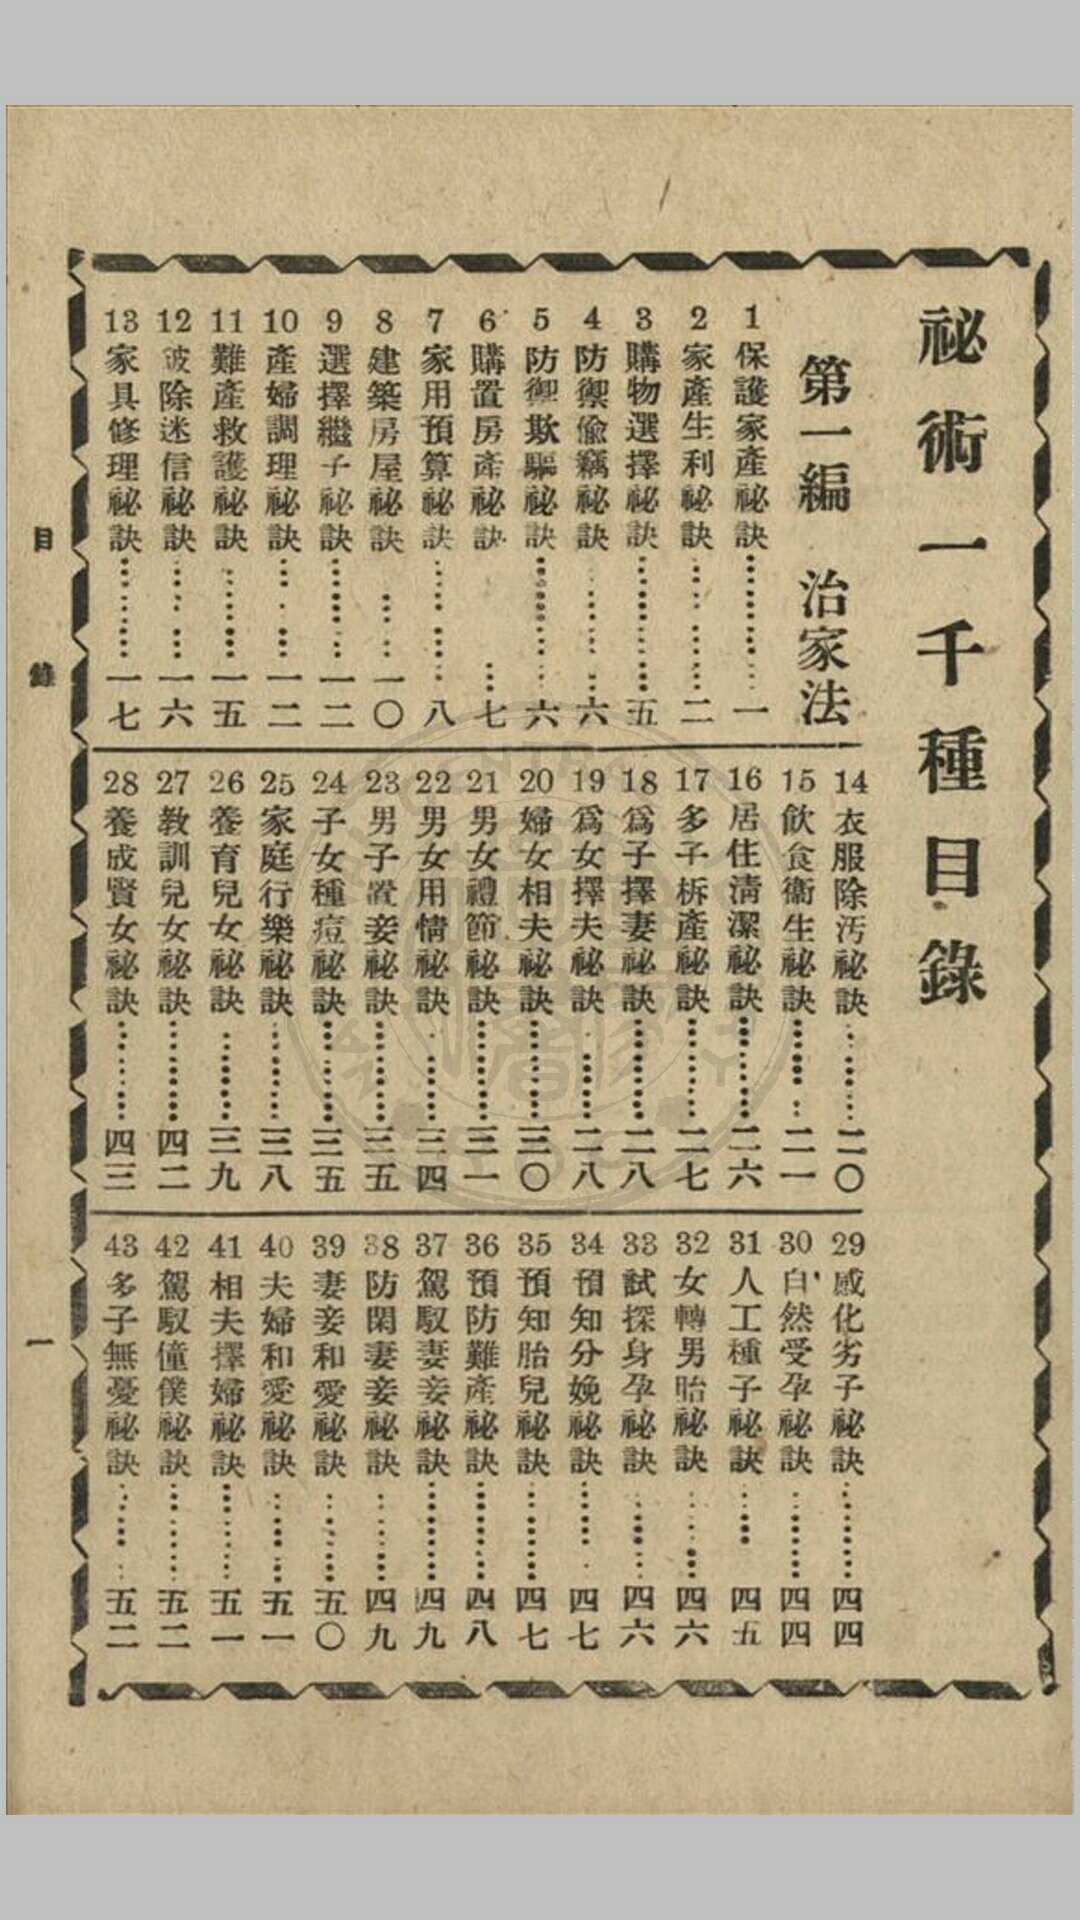 祕術一千種目錄
第一編　治家法
1 保護家產祕訣…………一
2 家產生利祕訣…………二
3 購物選擇祕訣…………五
4 防禦偷竊祕訣…………六
5 防禦欺騙祕訣…………六
6 購置房產祕訣…………七
7 家用預算祕訣…………八
8 建築房屋祕訣…………一〇
9 選擇繼子祕訣…………一二
10 產婦調理祕訣…………一二
11 難產救護祕訣…………一五
12 破除迷信祕訣…………一六
13 家具修理祕訣…………一七
14 衣服除汚祕訣…………二〇
15 飲食衞生祕訣…………二一
16 居住淸潔祕訣…………二六
17 多子析產祕訣…………二七
18 爲子擇妻祕訣…………二八
19 爲女擇夫祕訣…………二八
20 婦女相夫祕訣…………三〇
21 男女禮節祕訣…………三一
22 男女用情祕訣…………三四
23 男子置妾祕訣…………三五
24 子女種痘祕訣…………三五
25 家庭行樂祕訣…………三八
26 養育兒女祕訣…………三九
27 敎訓兒女祕訣…………四二
28 養成賢女祕訣…………四三
29 感化劣子祕訣…………四四
30 自然受孕祕訣…………四四
31 人工種子祕訣…………四五
32 女轉男胎祕訣…………四六
33 試探身孕祕訣…………四六
34 預知分娩祕訣…………四七
35 預知胎兒祕訣…………四七
36 預防難產祕訣…………四八
37 駕馭妻妾祕訣…………四九
38 防閑妻妾祕訣…………四九
39 妻妾和愛祕訣…………五〇
40 夫婦和愛祕訣…………五一
41 相夫擇婦祕訣…………五一
42 駕馭僮僕祕訣…………五二
43 多子無憂祕訣…………五二
目錄
一